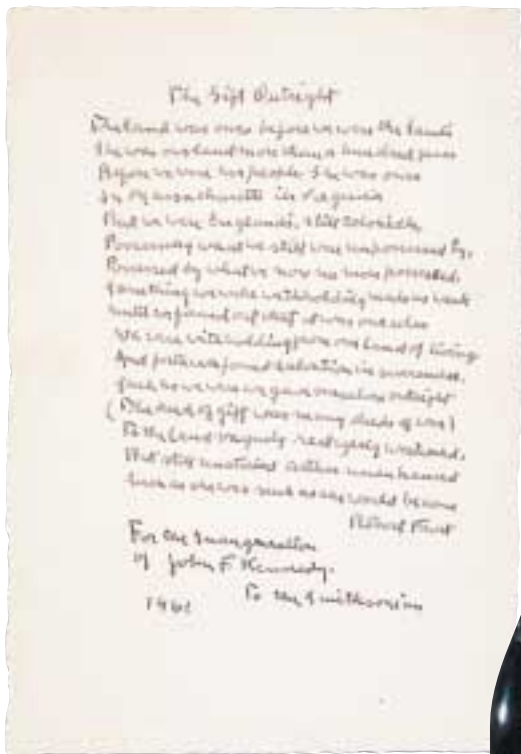 The Gift Outright
The land was ours before we were the lands
She was our land more than a hundred years
Before we were her people She was ours
In Massachusetts in Virginia
But we were Englands, still colonials,
Possessing what we still were unpossessed by,
Possessed by what we now no more possessed.
Something we were withholding made us weak
Until we found out that it was ourselves
We were withholding from our land of living
And forthwith found salvation in surrender.
Such as we were we gave ourselves outright
(The deed of gift was many deeds of war)
To the land vaguely realizing westward,
But still unstoried artless unenhanced
Such as she was such as she would become
Robert Frost
For the Inauguration
of John F Kennedy.
To the Smithsonian
1961